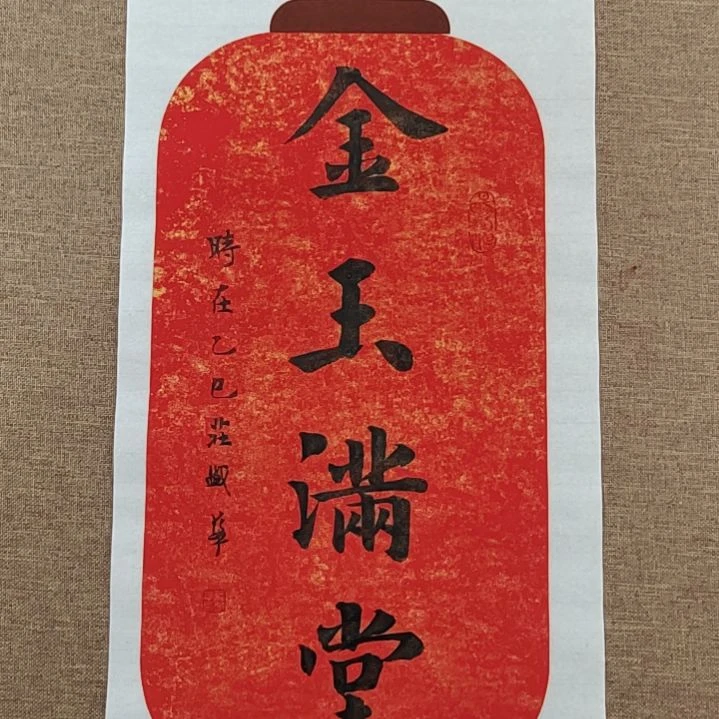 金玉滿堂
時在乙巳莊國華